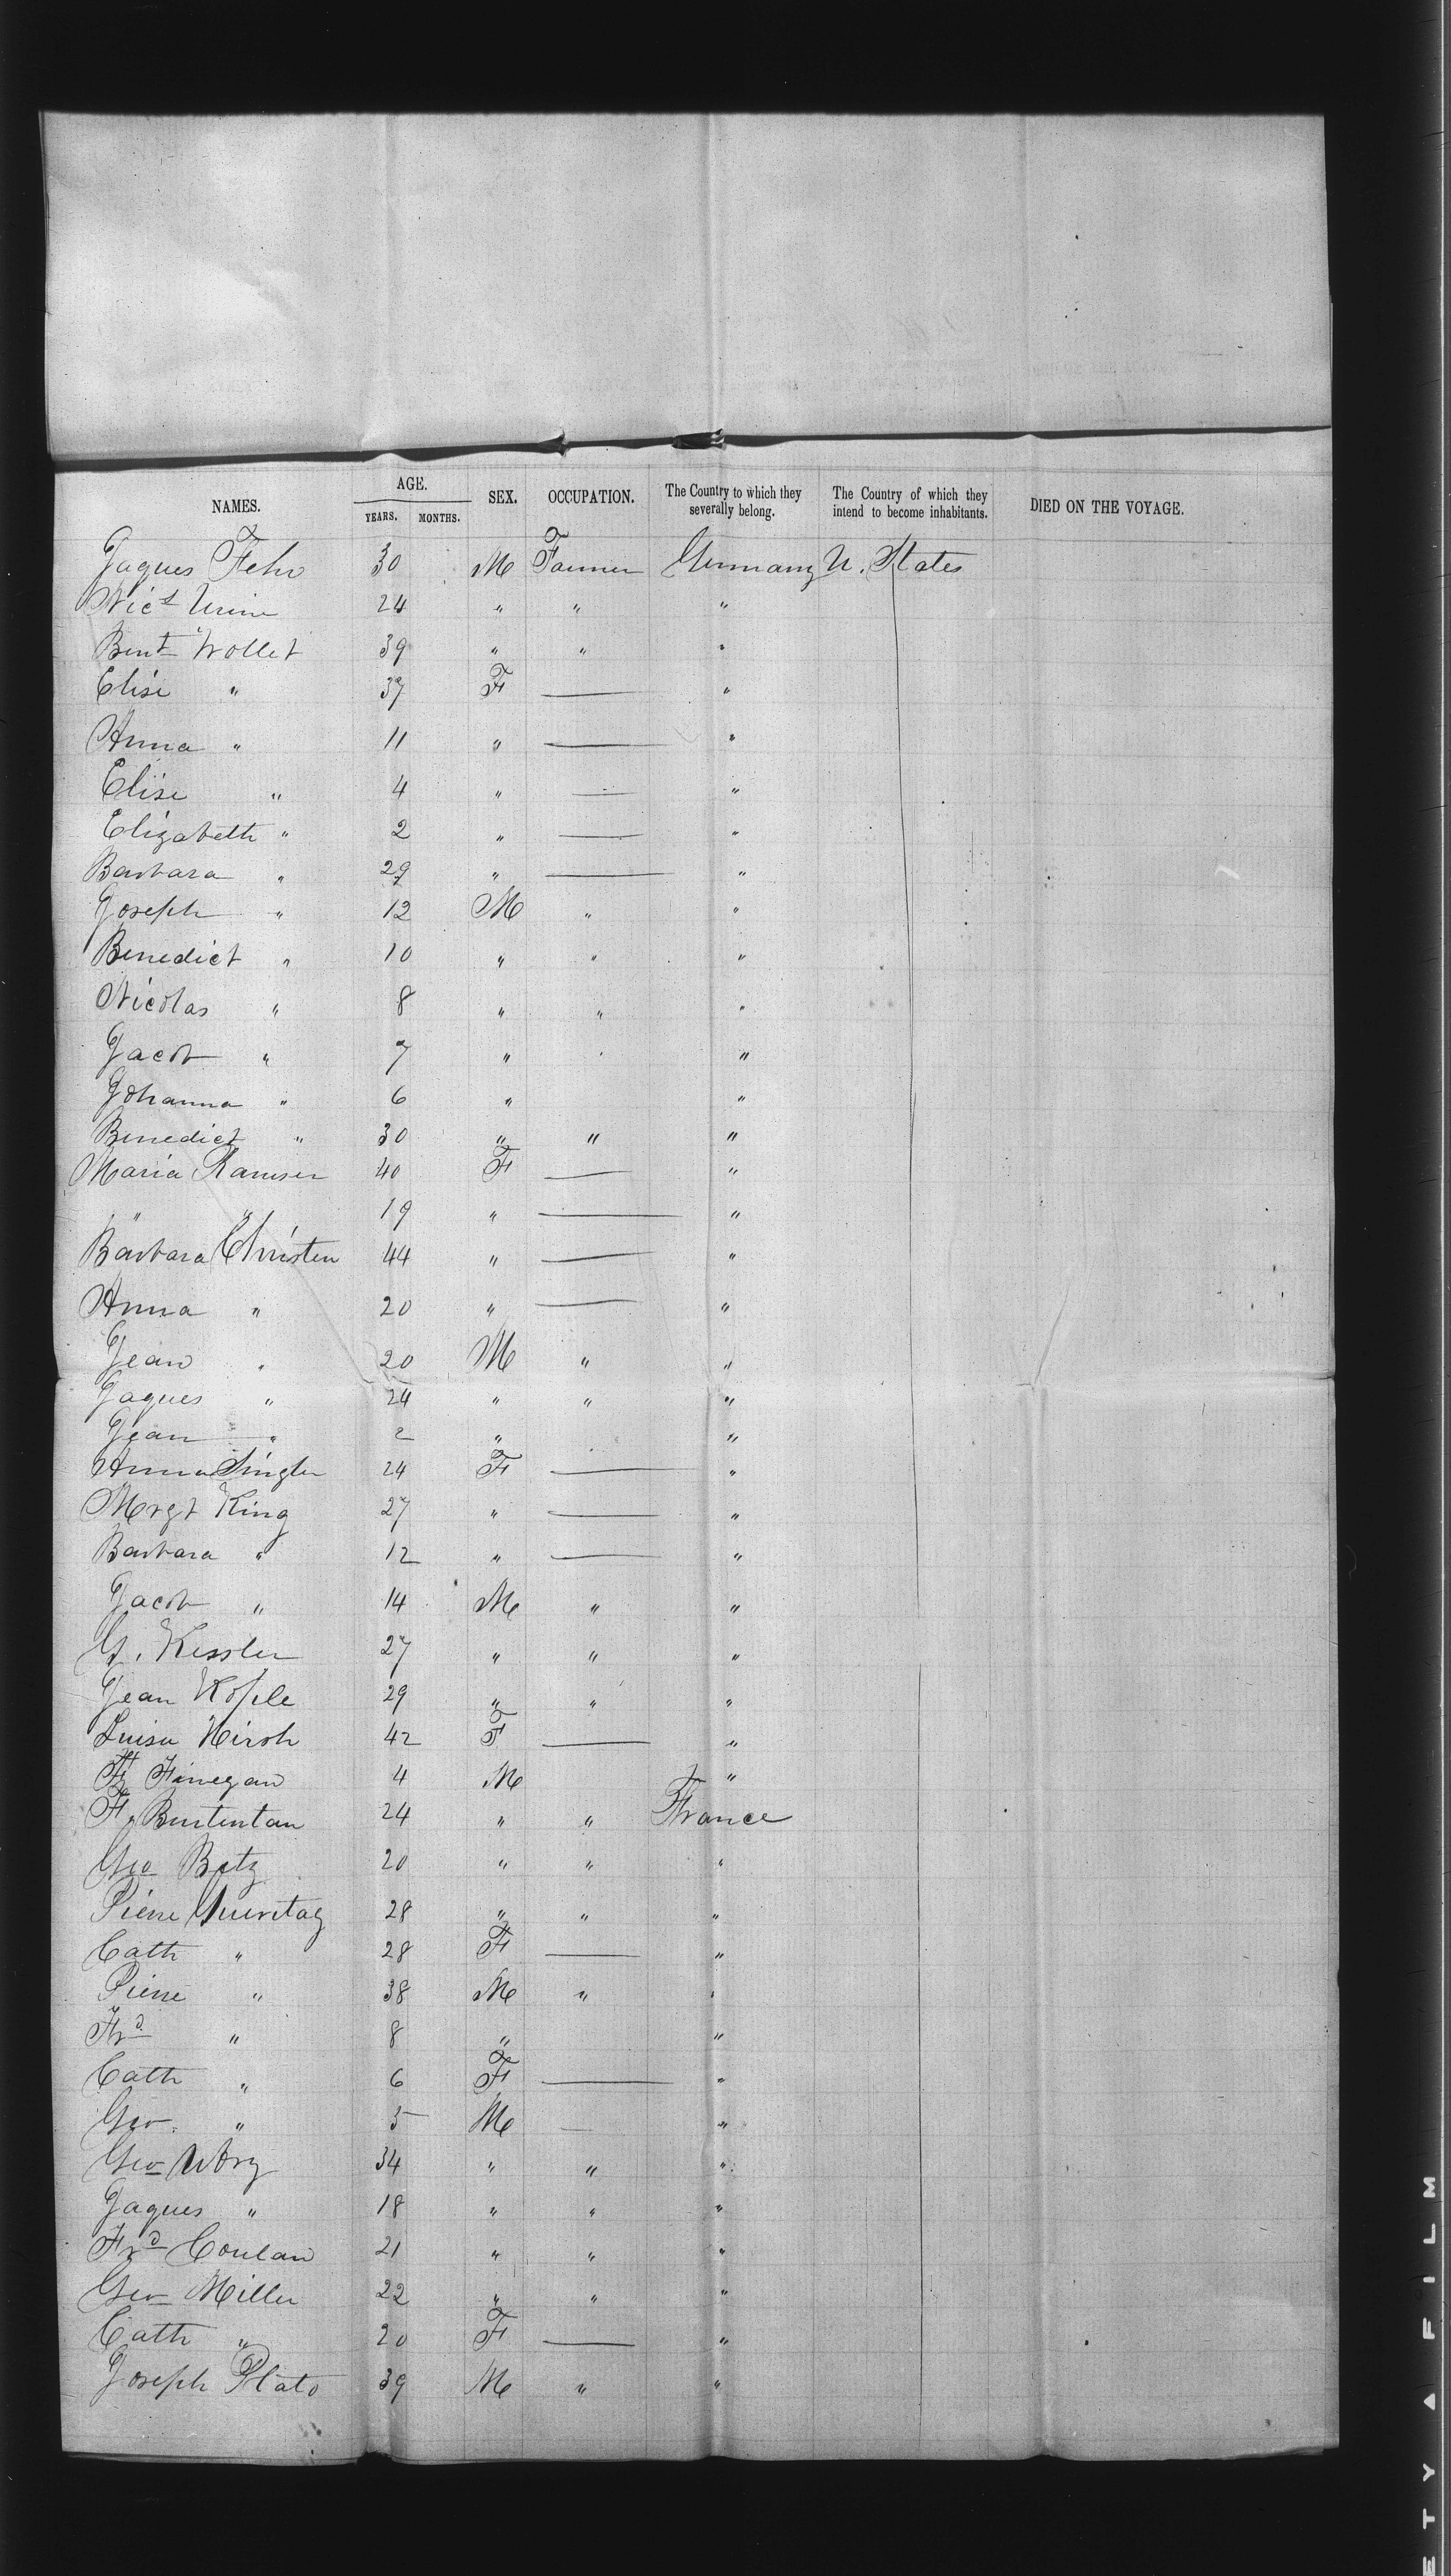 NAMES. AGE. YEARS. MONTHS. SEX. OCCUPATION. The Country to which they severally belong. The Country of which they intend to become inhabitants. DIED ON THE VOYAGE.
Jaques Fehr 30 M Farmer Germany U. States
Nics 24 " " "
Bent Wollet 39 " " "
Elise " 37 F — "
Anna " 11 " — "
Elise " 4 " — "
Elizabeth " 2 " — "
Barbara " 29 " — "
Joseph " 12 M " "
Benedict " 10 " " "
Nicolas " 8 " " "
Jacob " 7 " " "
Johanna " 6 " "
Benedict " 30 " " "
Maria Ramser 40 F — "
" " 19 " — "
Barbara Christen 44 " — "
Anna " 20 " — "
Jean " 20 M " "
Jaques " 24 " " "
Jean " 2 " " "
Anna Singler 24 F — "
Mrgt King 27 " — "
Barbara " 12 " — "
Jacob " 14 M " "
G. Kessler 27 " " "
Jean Kople 29 " " "
Luisa Hirsh 42 F — "
F. Finegan 4 M "
F. 24 " " France
Geo Betz 20 " " "
Pierre 28 " " "
Cath " 28 F — "
Pierre " 38 M " "
Frd " 8 " "
Cath " 6 F — "
Geo. " 5 M — "
Geo 34 " " "
Jaques " 18 " " "
Frd Coulan 21 " " "
Geo Miller 22 " " "
Cath " 20 F — "
Joseph Plato 39 M " "
ETY A FILM